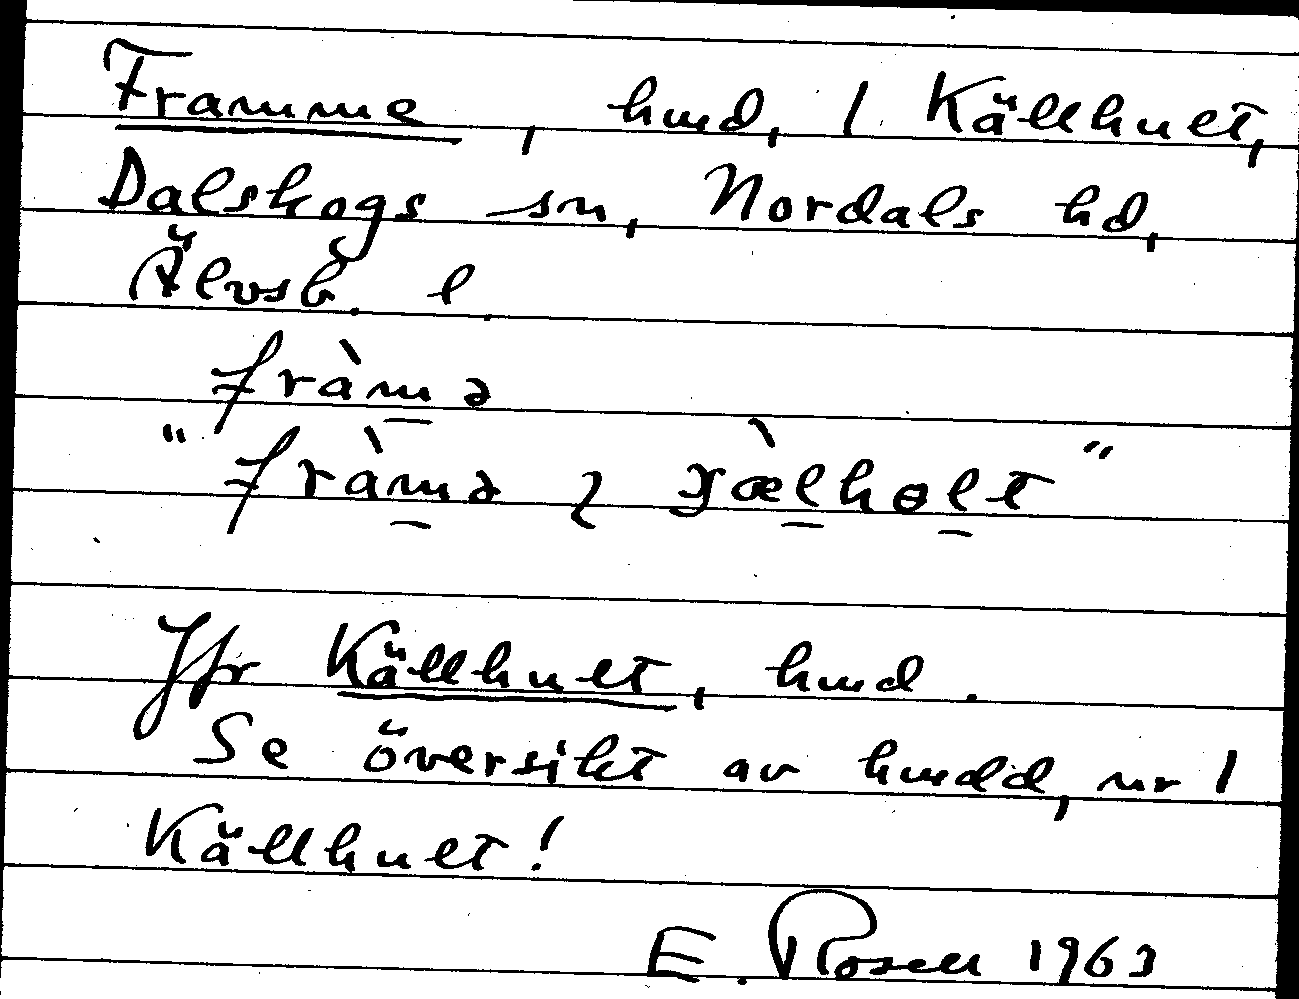 Framme, hmd, 1 Källhult,
Dalskogs sn, Nordals hd,
Älvsb. l.
fràmə
"fràmə ɩ ɣæ̀lhɵlt"
Jfr Källhult, hmd.
Se översikt av hmdd, nr 1
Källhult!
E. Rosell 1963